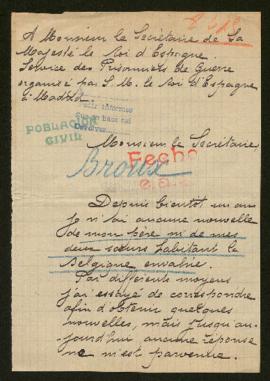 A Monsieur le Secrétaire de Sa
Majesté le Roi d'Espagne
Service des Prisonniers de Guerre
organisé par S. M. le Roi d'Espagne
à Madrid.
POBLACIÓN
CIVIL
Monsieur le Secrétaire
Fecho
Broux
Depuis bientôt un an
je n'ai aucune nouvelle
de mon père ni de mes
deux sœurs habitant la
Belgique envahie.
Par différents moyens
j'ai essayé de correspondre
afin d'obtenir quelques
nouvelles, mais jusqu'au-
jourd'hui aucune réponse
ne m'est parvenue.